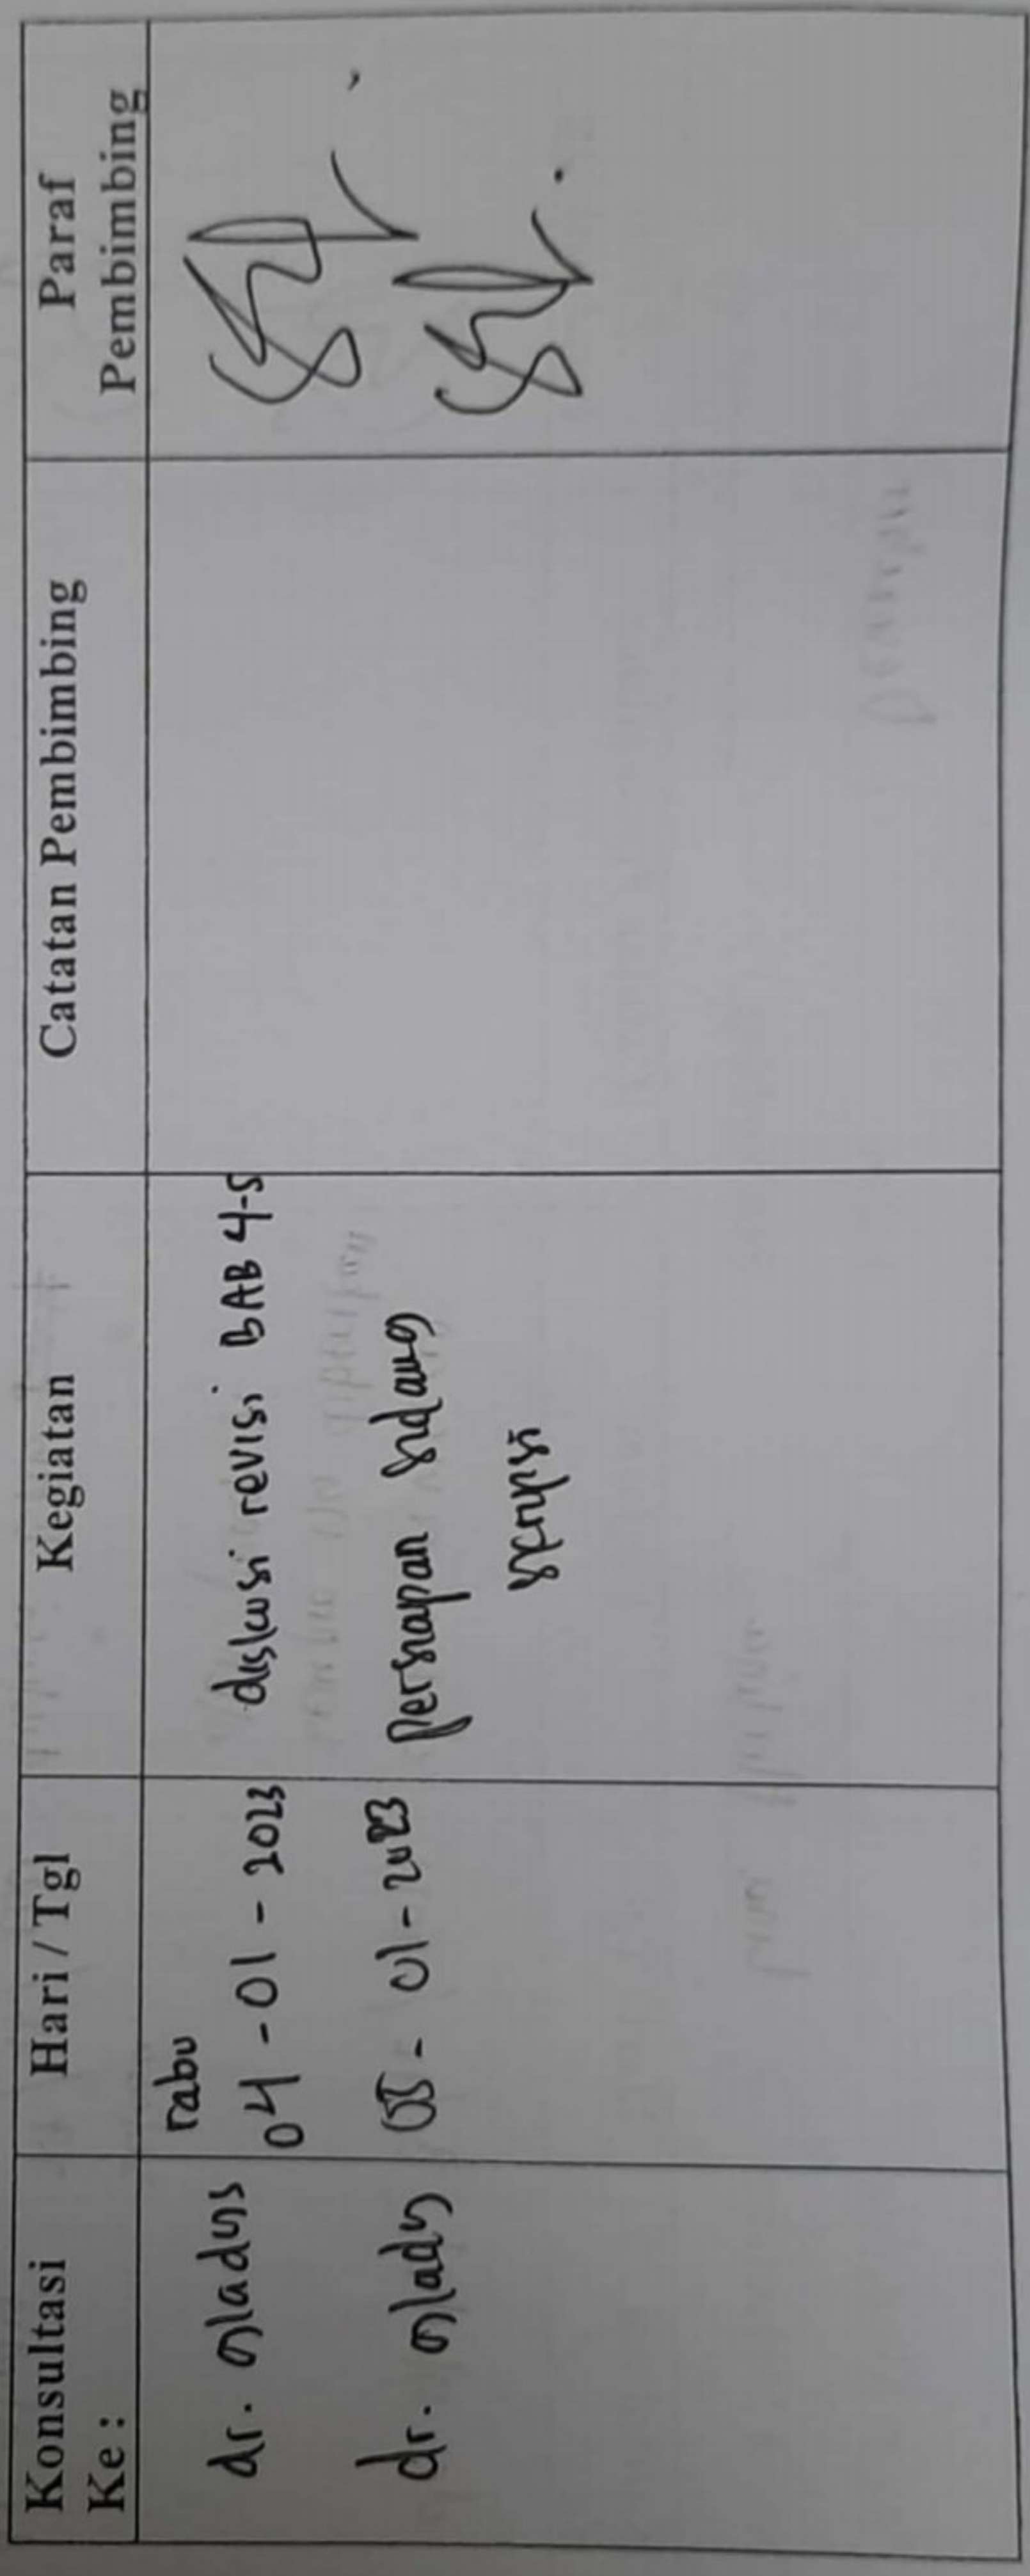 Konsultasi Ke : Hari / Tgl Kegiatan Catatan Pembimbing Paraf Pembimbing
rabu
dr. gladys 04 - 01 - 2023 diskusi revisi BAB 4-5
dr. glady 05 - 01 - 2023 Persiapan sidang
skripsi